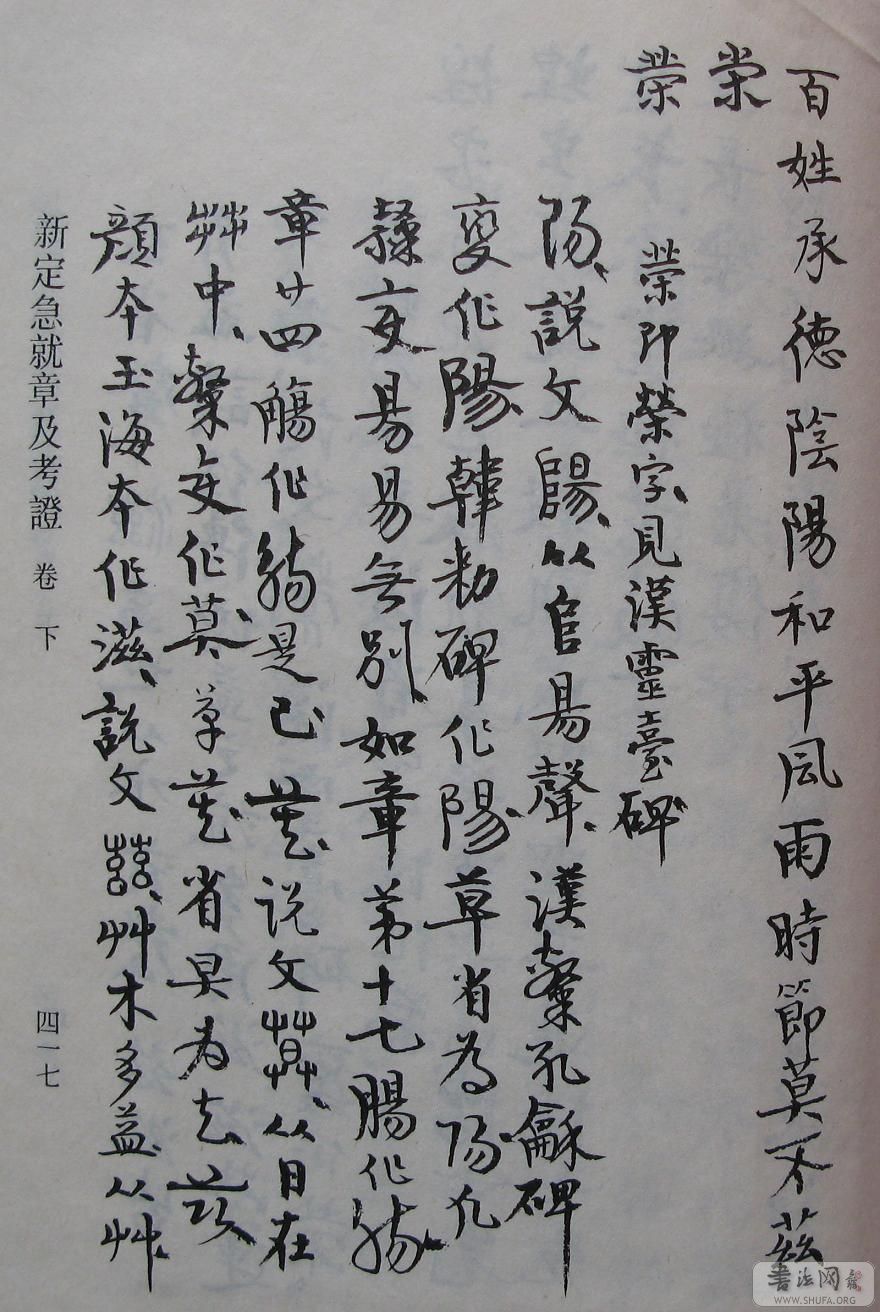 百姓承德陰陽和平風雨時節莫不茲
荣
荣 荣即榮字見漢靈臺碑
阝昜說文陽从𨸏昜聲漢隸孔龢碑
變作陽韓勑碑作陽草省為阳凡
隸变昜易無別如章第十七腸作
章廿四觴作觞是已 说文茻从日在
茻中隸变作莫草省旲為
顏本玉海本作滋說文茲艸木多益从艸
新定急就章及考證 卷下
四一七
書法网
WWW.SHUFA.ORG